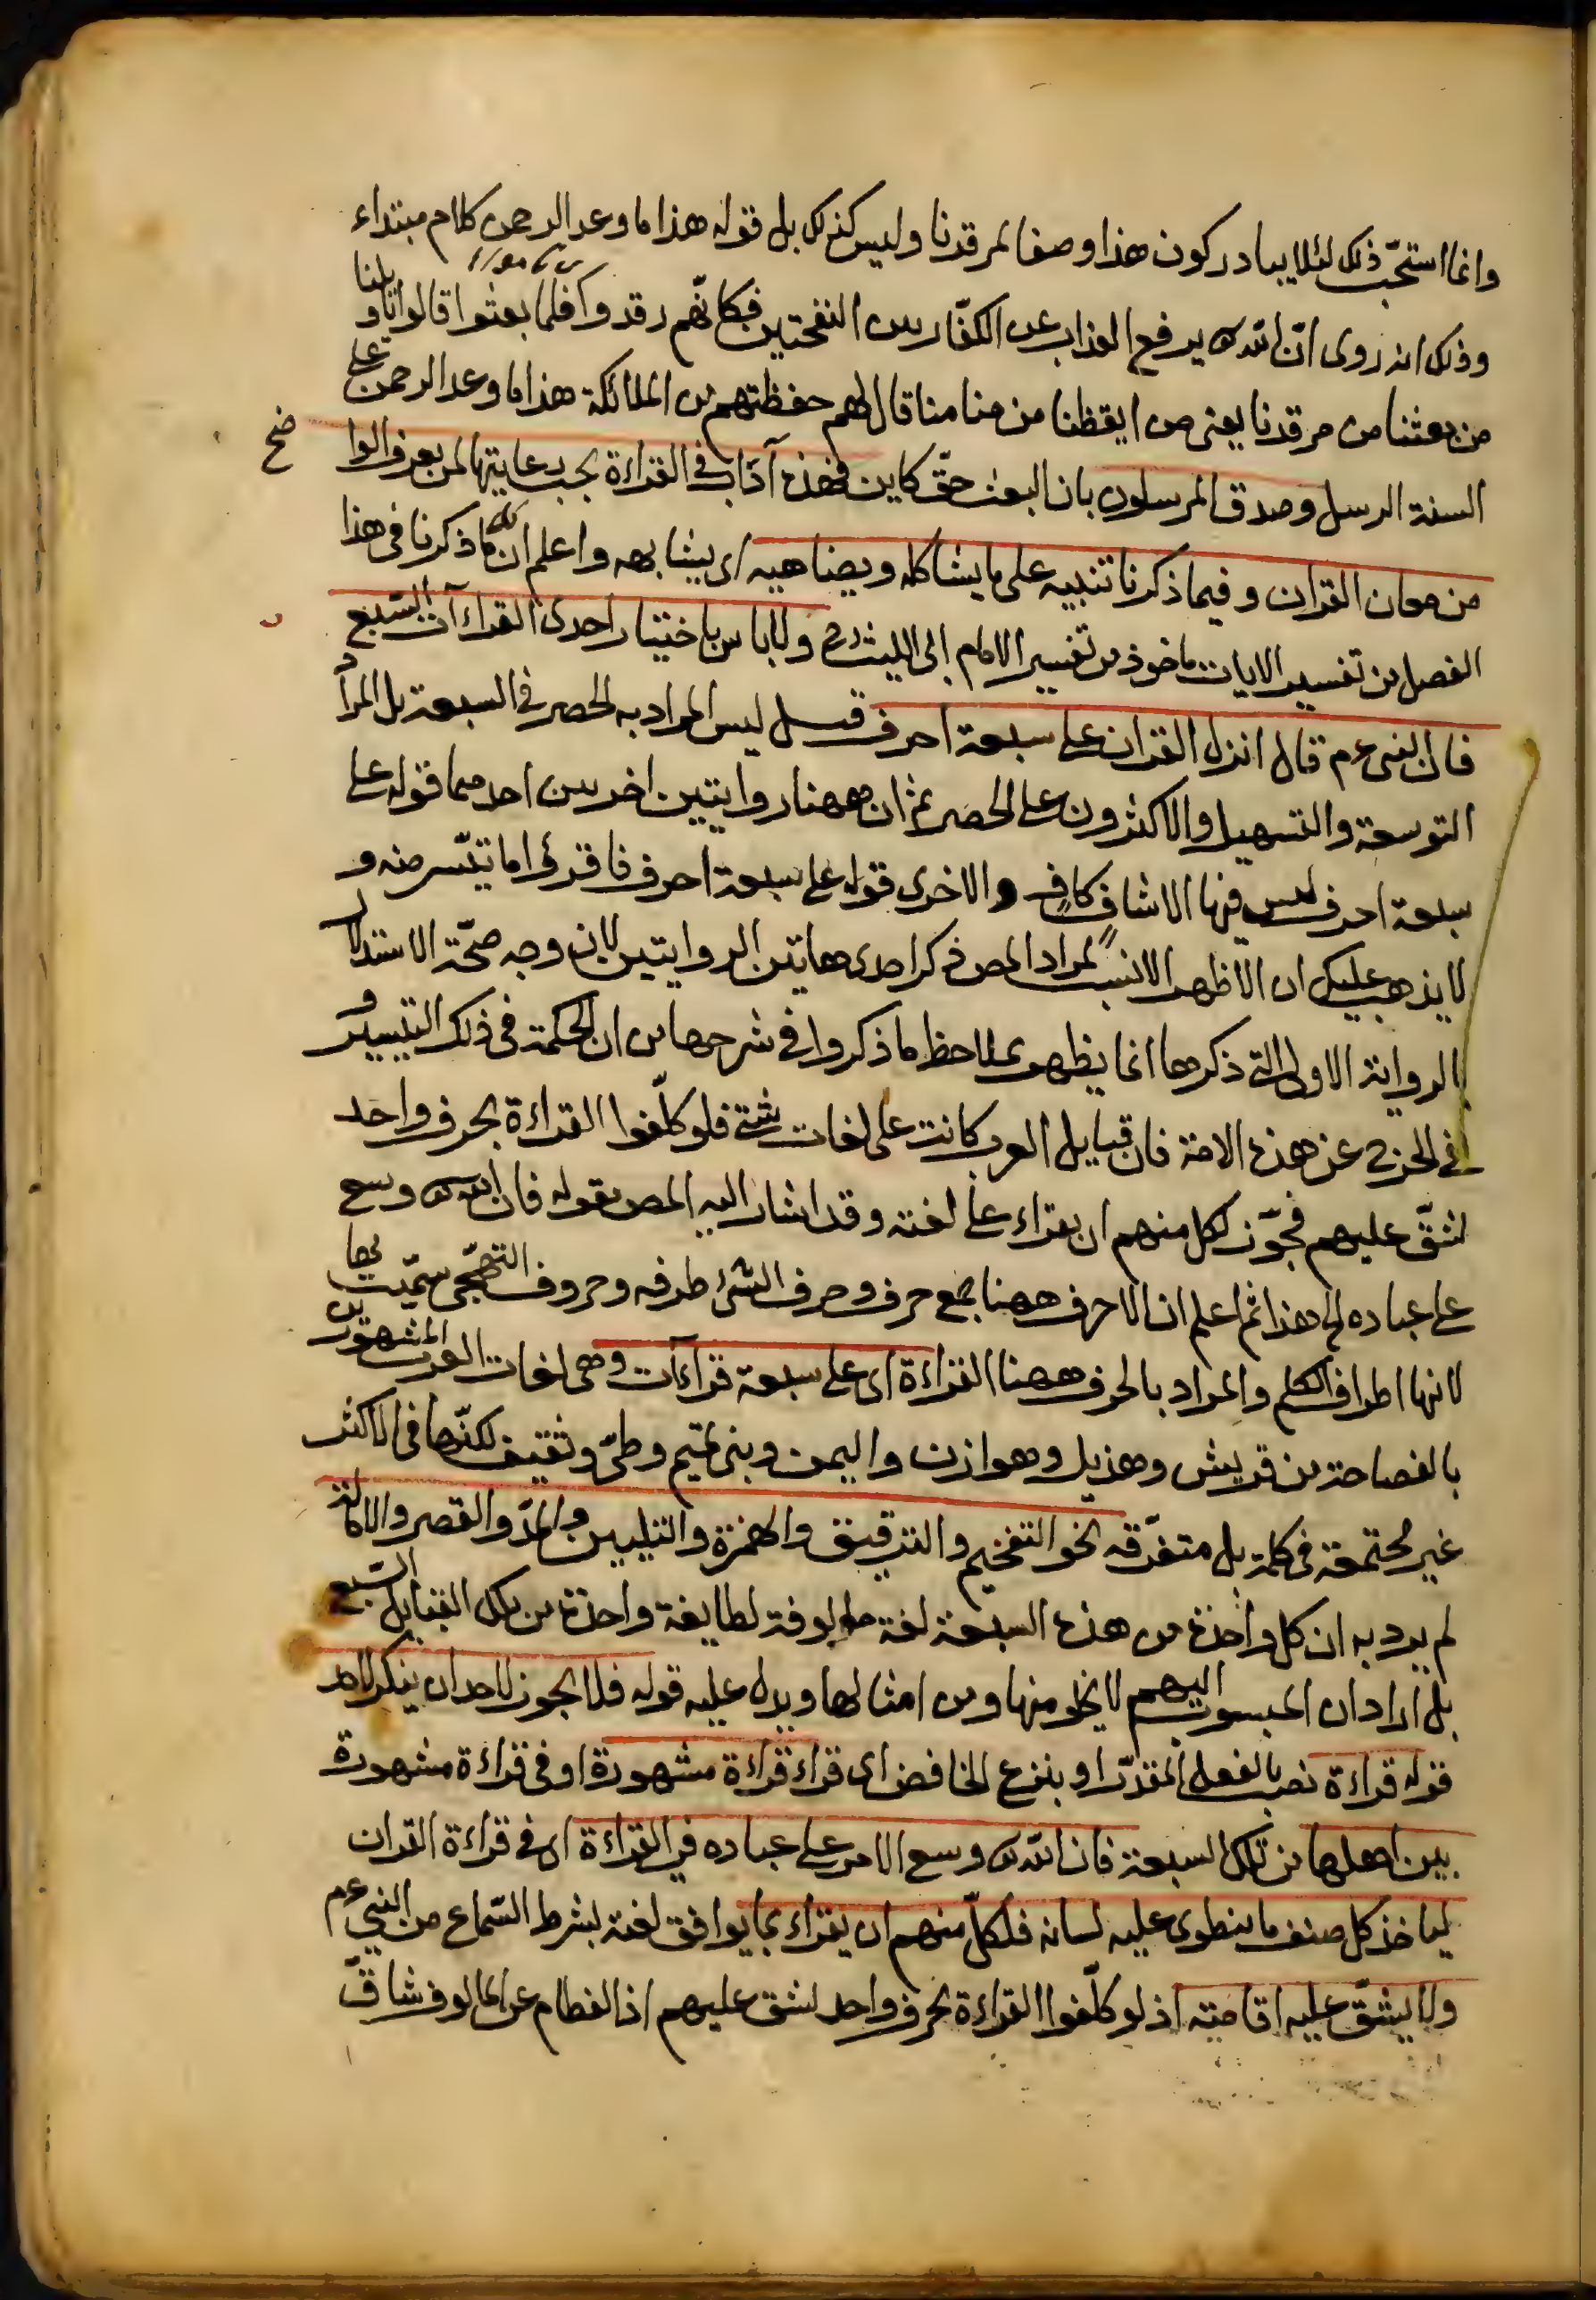 وانما استحبّ ذلك لئلا يبادر كون هذا وصفا لمرقدنا وليس كذلك بل قوله هذا ما وعد الرحمن كلام مبتداء
وذلك انه روى انّ الله تع يرفع العذاب عن الكفّار بين النفختين فكانّهم رقدوا فلما بعثوا قالوا يا ويلنا
من بعثنا من مرقدنا يعنى من ايقظنا من منامنا قال لهم حفظتهم من الملائكة هذا ما وعد الرحمن على
السنة الرسل وصدق المرسلون بان البعث حقّ كاين فهذه آداب فى القراءة يجب رعايتها لمن يعرف الوا
ضح
من معان القران وفيما ذكرنا تنبيه على ما يشاكله ويضاهيه اى يشابهه واعلم ان كل ما ذكرنا فى هذا
الفصل من تفسير الايات ماخوذ من تفسير الامام ابى الليث رح ولا باس باختيار احدى القراءآت السّبع
فان النبى عم قال انزل القران على سبعة احرف قيل ليس المراد به الحصر فى السبعة بل المراد
التوسعة والتسهيل والاكثرون على الحصر ثم ان ههنا روايتين اخريين احديهما قوله على
سبعة احرف ليس فيها الا شاف كافٍ والاخرى قوله على سبعة احرف فاقرؤا ما تيّسر منه و
لا يذهب عليك ان الاظهر الانسب لمراد المص ذكر احدى هاتين الروايتين لان وجه صحّة الاستدلال
بالرواية الاولى التى ذكرها انما يظهر بملاحظ ما ذكروا فى شرحها من ان الحكمة فى ذلك التيسير و
نفى الحرج عن هذه الامة فان قبايل العرب كانت على لغات شتى فلو كلّفوا القراءة بحرف واحد
لشقّ عليهم فجوّز لكل منهم ان يقراء على لغته وقد اشار اليه المص بقوله فان الله تع وسع
على عباده الى هذا ثم اعلم ان الاحرف ههنا جمع حرف وحرف الشئ طرفه وحروف التهجّى سمّيت بها
لانها اطراف الكلم والمراد بالحرف ههنا القراءة اى على سبعة قراءآت وهى لغات العرب المشهورين
بالفصاحة من قريش وهذيل وهوازن واليمن وبنى تميم وطىّ وثقيف لكنّها فى الاكثر
غير مجتمعة فى كلمة بل متفرّقه نحو التفخيم والترقيق والهمزة والتليين والمدّ والقصر والامالة
لم يرد به ان كل واحدة من هذه السبعة لغة مالوفة لطايفة واحدة من تلك القبايل السّبع
بل اراد ان المنسوب اليهم لا يخلو منها ومن امثالها ويدل عليه قوله فلا يجوز لاحد ان ينكر لاحد
قوله قراءة نصب بالفعل المقدّر او بنزع الخافض اى قراء قراءة مشهورة او فى قراءة مشهورة
بين اهلها من تلك السبعة فان الله تع وسع الامر على عباده فى القراءة اى فى قراءة القران
لياخذ كل صنف ما ينطوى عليه لسانه فلكلّ منهم ان يقراء بما يوافق لغته بشرط السّماع من النبى عم
ولا يشّق عليه اقامته اذ لو كلّفوا القراءة بحرف واحد لشق عليهم اذ الفطام عن المالوف شاقّ